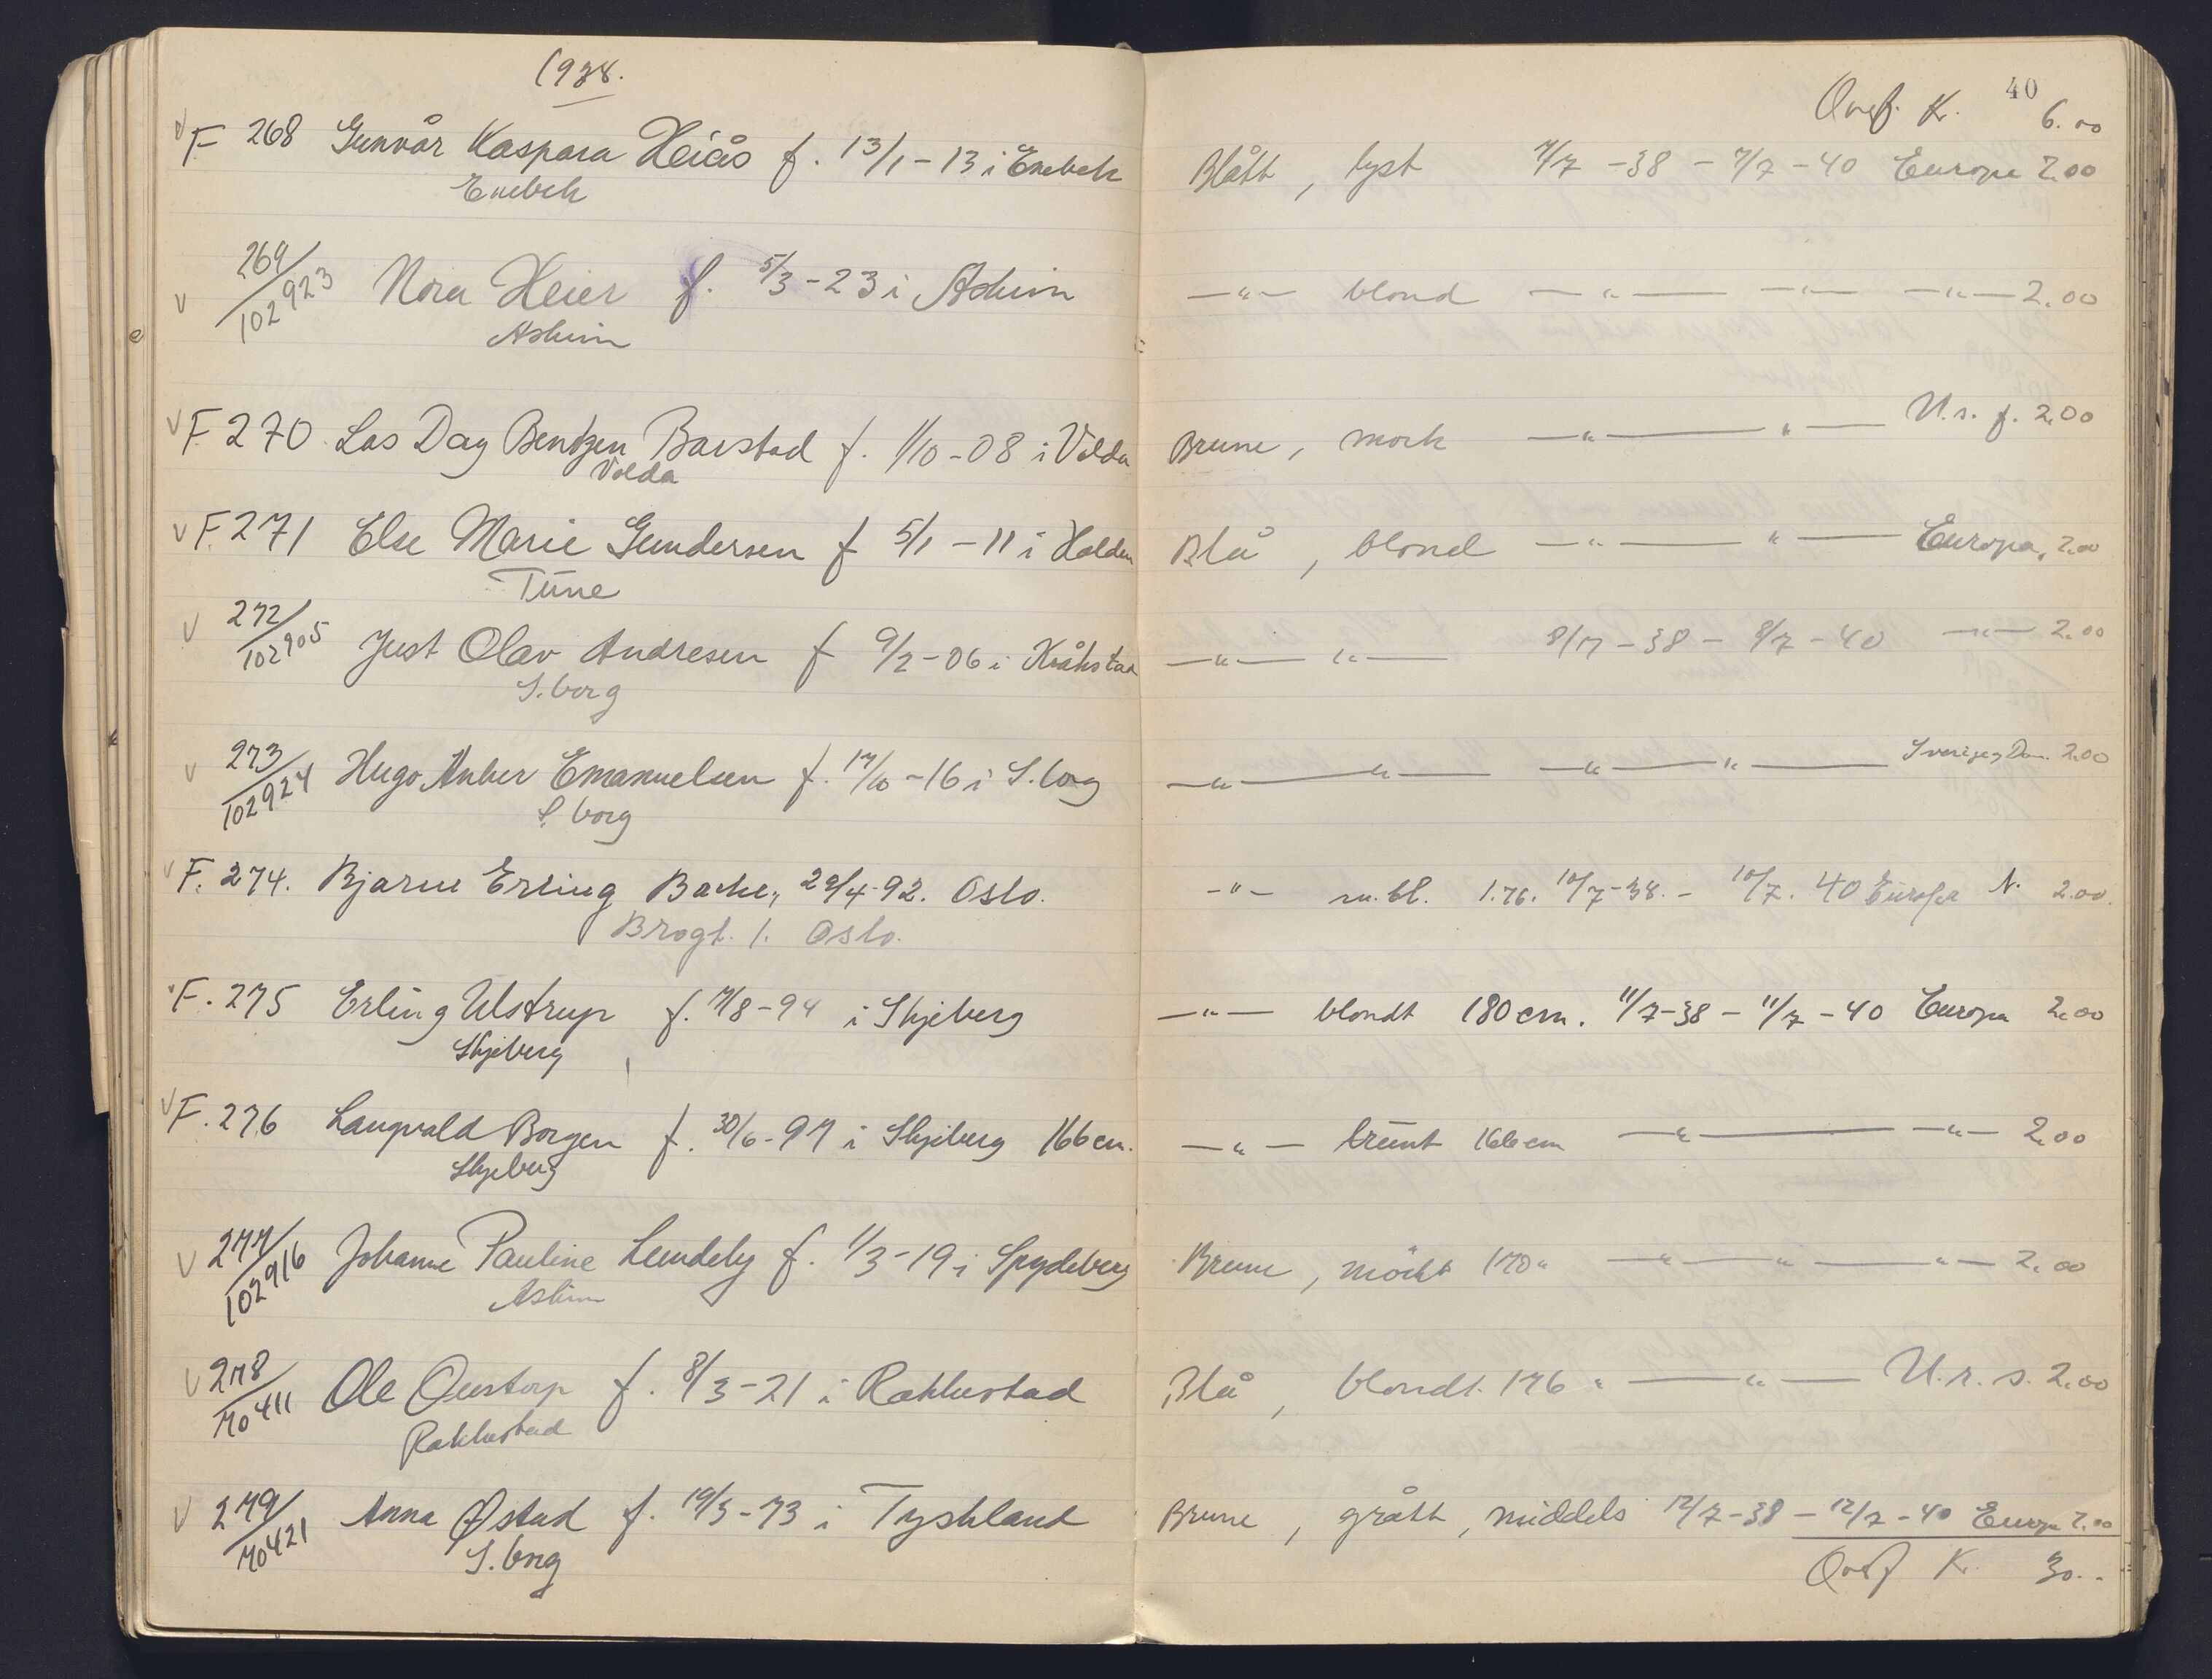 1938.
40
Overf. K. 6.00
F 268 Gunvår Kaspara Heiås f. 13/1-13 i Enebak Blått, lyst 7/7-38 - 7/7-40 Europa 2.00
Enebak
269/102923 Nora Heier f. 5/3-23 i Askim —"— blond —"— —"— —"— 2.00
Askim
F. 270. Las Dag Bentzen Barstad f. 1/10-08 i Volda Brune, mork —"— " — U.s.f. 2.00
Volda
F. 271 Else Marie Gundersen f 5/1-11 i Halden Blå, blond —"— " — Europa, 2.00
Tune
272/102905 Just Olav Andresen f 9/2-06 i Kråkstad —"— "— 8/7-38 - 8/7-40 —"— 2.00
S.borg
273/102924 Hugo Anker Emanuelsen f. 17/10-16 i S.borg —"— "— —"— "— Sverige, Dan. 2.00
S.borg
F. 274. Bjarne Erling Bache, 29/4-92. Oslo. -"- m.bl. 1.76. 10/7-38. - 10/7. 40 Europa N. 2.00.
Brogt. 1. Oslo.
F. 275 Erling Ulstrup f. 7/8-94 i Skjeberg —"— blondt 180 cm. 11/7-38 - 11/7-40 Europa 2.00
Skjeberg
F. 276 Langvald Borgen f. 30/6-97 i Skjeberg 166 cm. —"— brunt 166 cm —"— —"— 2.00
Skjeberg
277/102916 Johanne Pauline Lundeby f. 1/3-19 i Spydeberg Brune, mörkt 170 " —"— " — "— 2.00
Askim
278/70411 Ole Oustorp f. 8/3-21 i Rakkestad Blå, blondt. 176 " —"— U.r.s. 2.00
Rakkestad
279/70421 Anna Østad f. 19/3-73 i Tyskland Brune, grått, middels 12/7-38 - 12/7-40 Europa 2.00
S.borg
Overf K. 30.-